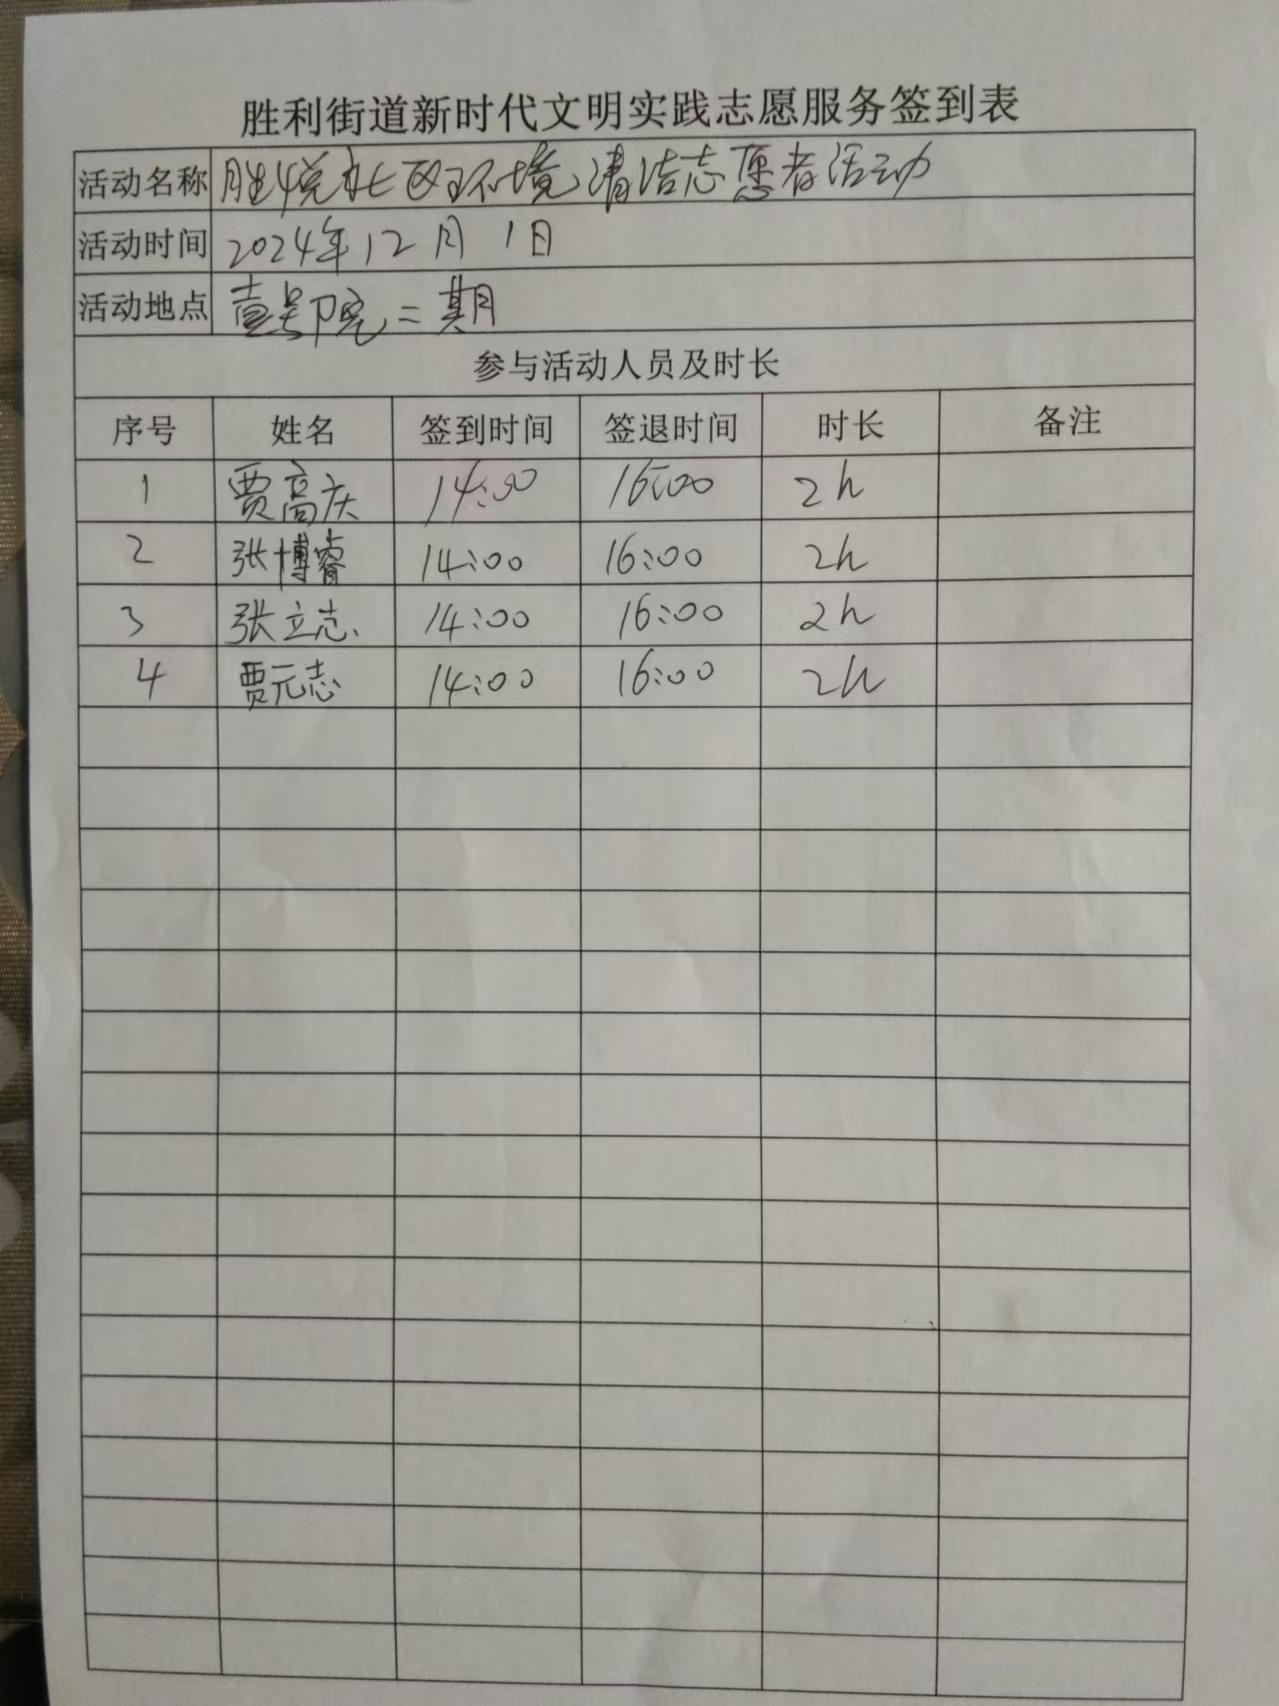 胜利街道新时代文明实践志愿服务签到表
活动名称 胜悦社区环境清洁志愿者活动
活动时间 2024年12月1日
活动地点 壹号院二期
参与活动人员及时长
序号 姓名 签到时间 签退时间 时长 备注
1 贾高庆 14:00 16:00 2h
2 张博睿 14:00 16:00 2h
3 张立志 14:00 16:00 2h
4 贾元志 14:00 16:00 2h